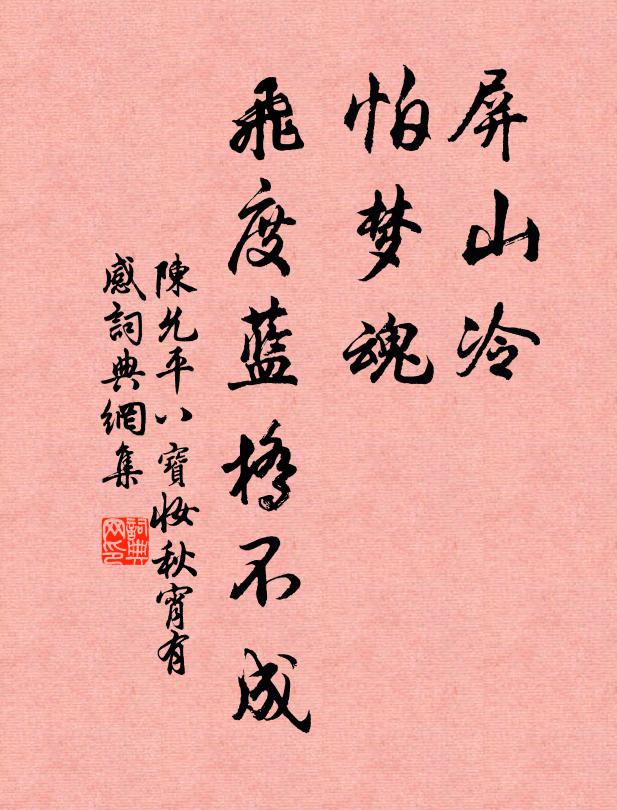 屏山冷
怕梦魂
飛度藍橋不成
陳允平八寶妝秋宵有
感詞典網集
詞典网印